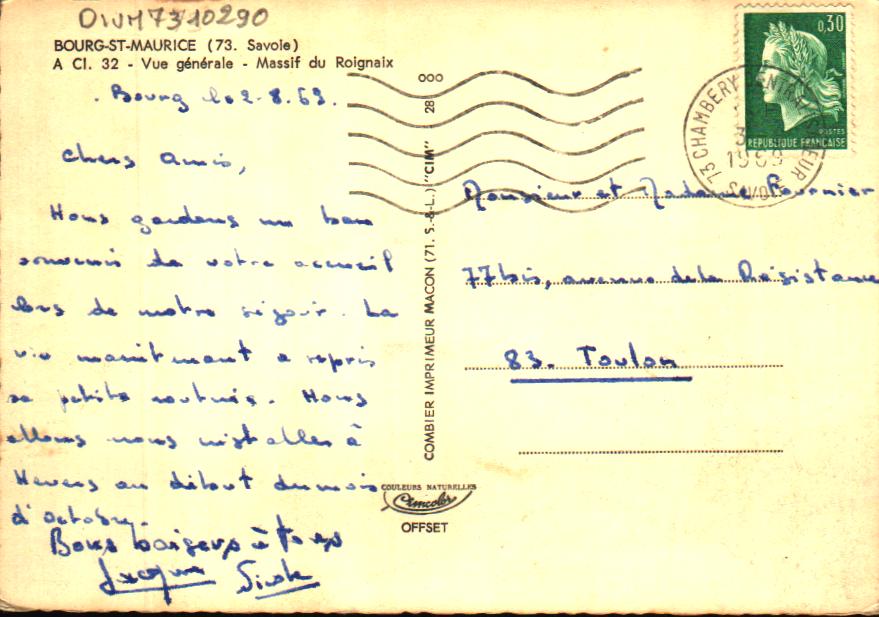 OWM7310290
BOURG-ST-MAURICE (73. Savoie)
A CI. 32 - Vue générale - Massif du Roignaix
Bourg le 2.8.69.
Chers Amis,
Nous gardons un bon
souvenir de votre accueil
lors de notre séjour. La
vie maintenant a repris
sa petite routine. Nous
allons nous installer à
au début du mois
d'octobre.
Bons baisers à tous
COMBIER IMPRIMEUR MACON (71. S.-&-L.) "CIM"
28 000
COULEURS NATURELLES
Cimcolor
OFFSET
0,30
POSTES
REPUBLIQUE FRANÇAISE
73 CHAMBERY
1969
SAVOIE
Monsieur et Madame Fournier
77bis, avenue de la Résistance
83. Toulon